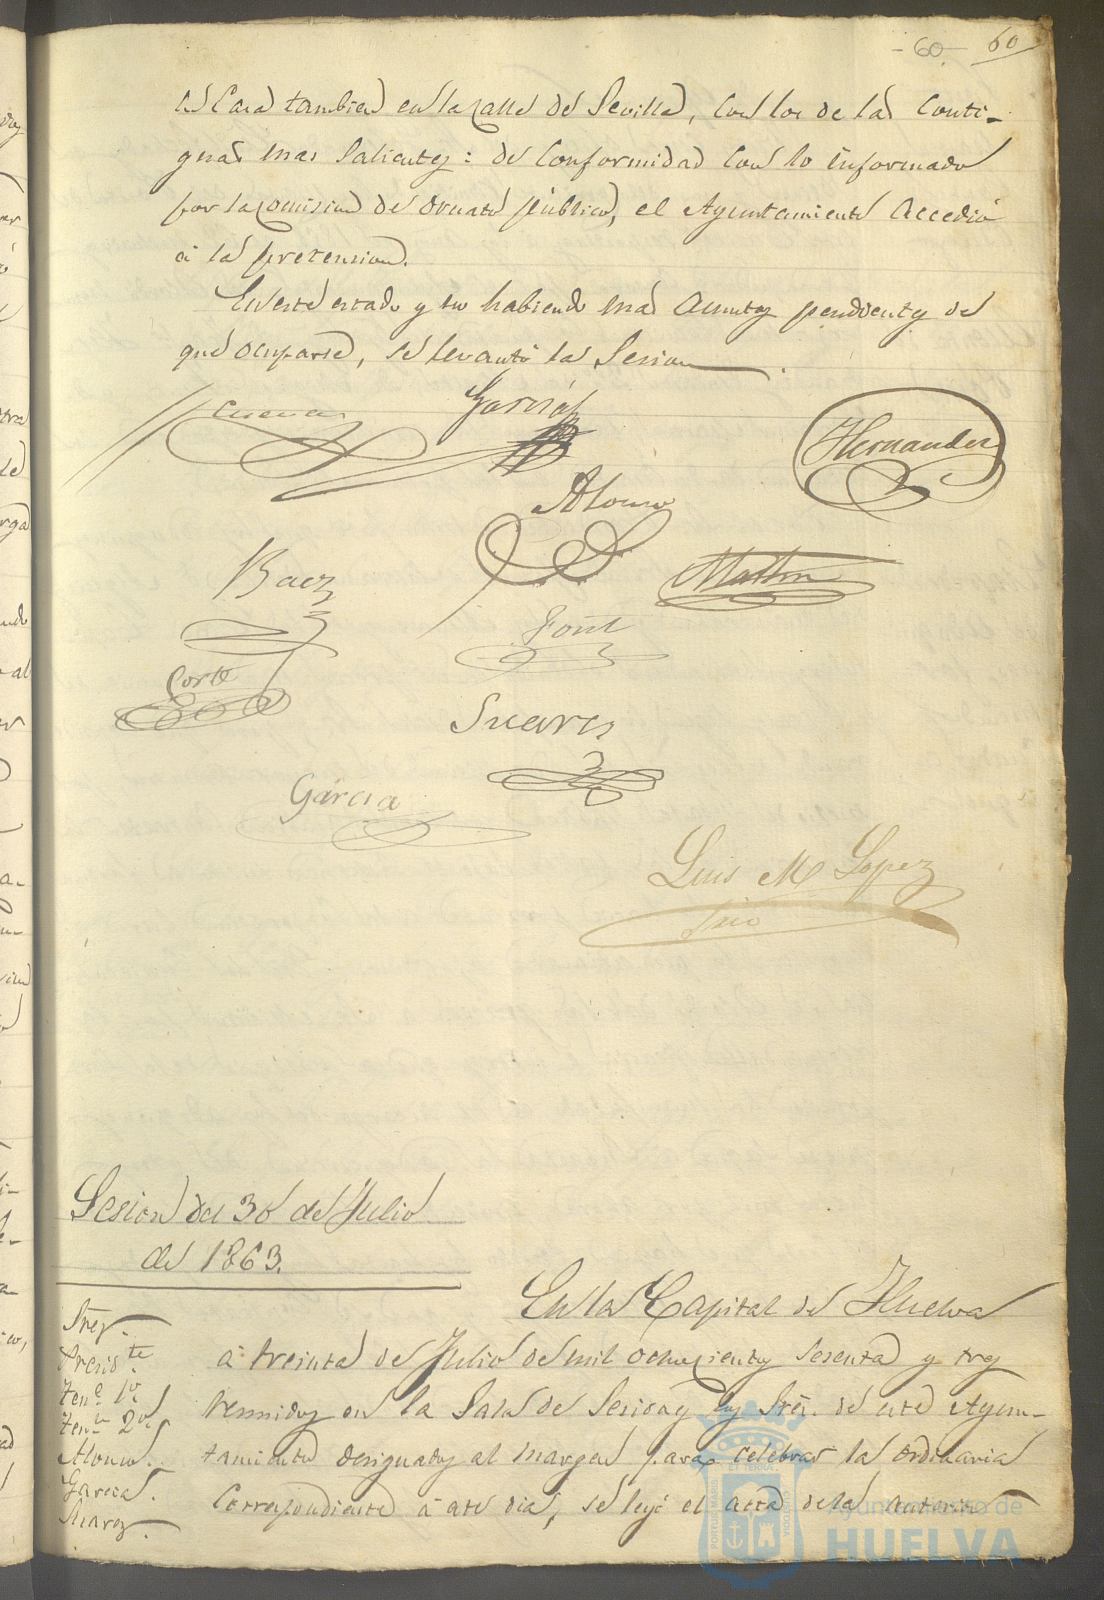 -60- 60
su Casa tambien en la Calle de Sevilla, con los de las Conti-
guas mas Salientes: de Conformidad con lo informado
por la Comision de Ornato público, el Ayuntamiento Accedió
á la pretension.
En este estado y no habiendo mas Asuntos pendientes de
que ocuparse, se levantó la Sesion.
Cuevas Garcia Hernandez
Alonso
Baez Martin
Font
Corte
Suarez
Garcia
Luis M Lopez
Srio
Sesion del 30 de Julio
de 1863.
Sres.
Presidte
Tene 1º
Tene 2º
Alonso.
Garcia.
Suarez.
En la Capital de Huelva
á treinta de Julio de mil ochocientos sesenta y tres
reunidos en la Sala de Sesiones los Sres. de este Ayun-
tamiento designados al margen para celebrar la Ordinaria
Correspondiente á este dia, se leyó el acta de la anterior
Ayuntamiento de
HUELVA